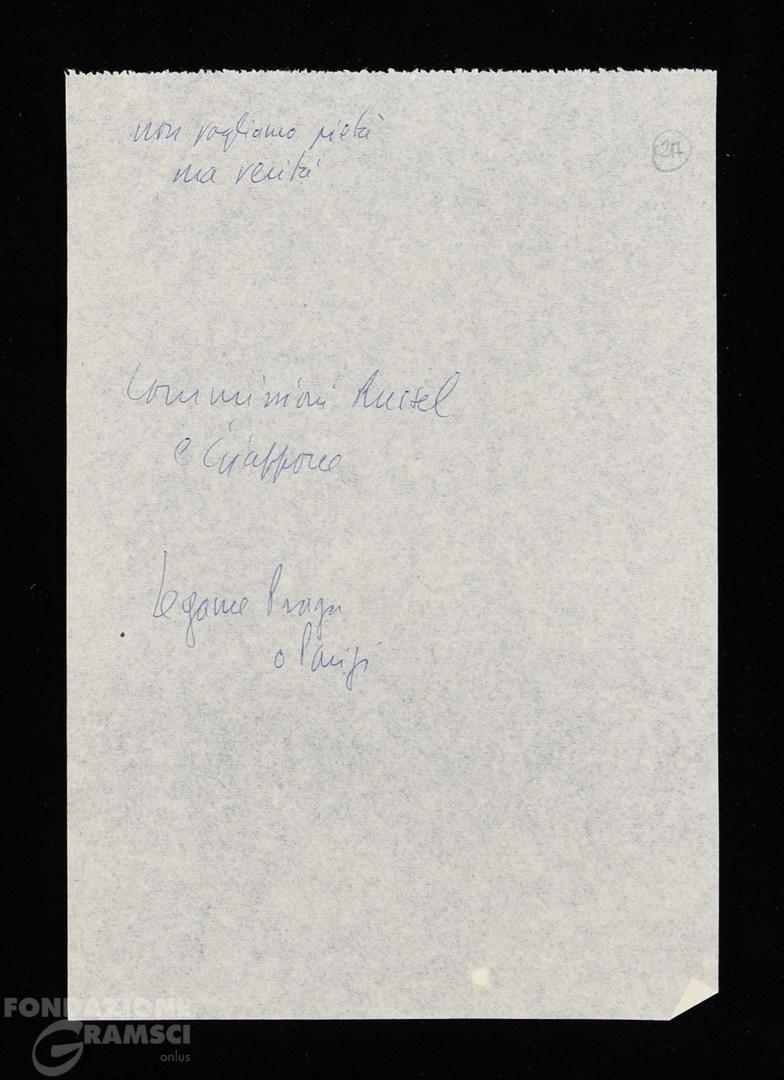 non vogliamo pietà
27
ma verità
Commissioni Russel
e Giappone
legame Praga
o Parigi
FONDAZIONE
GRAMSCI
onlus